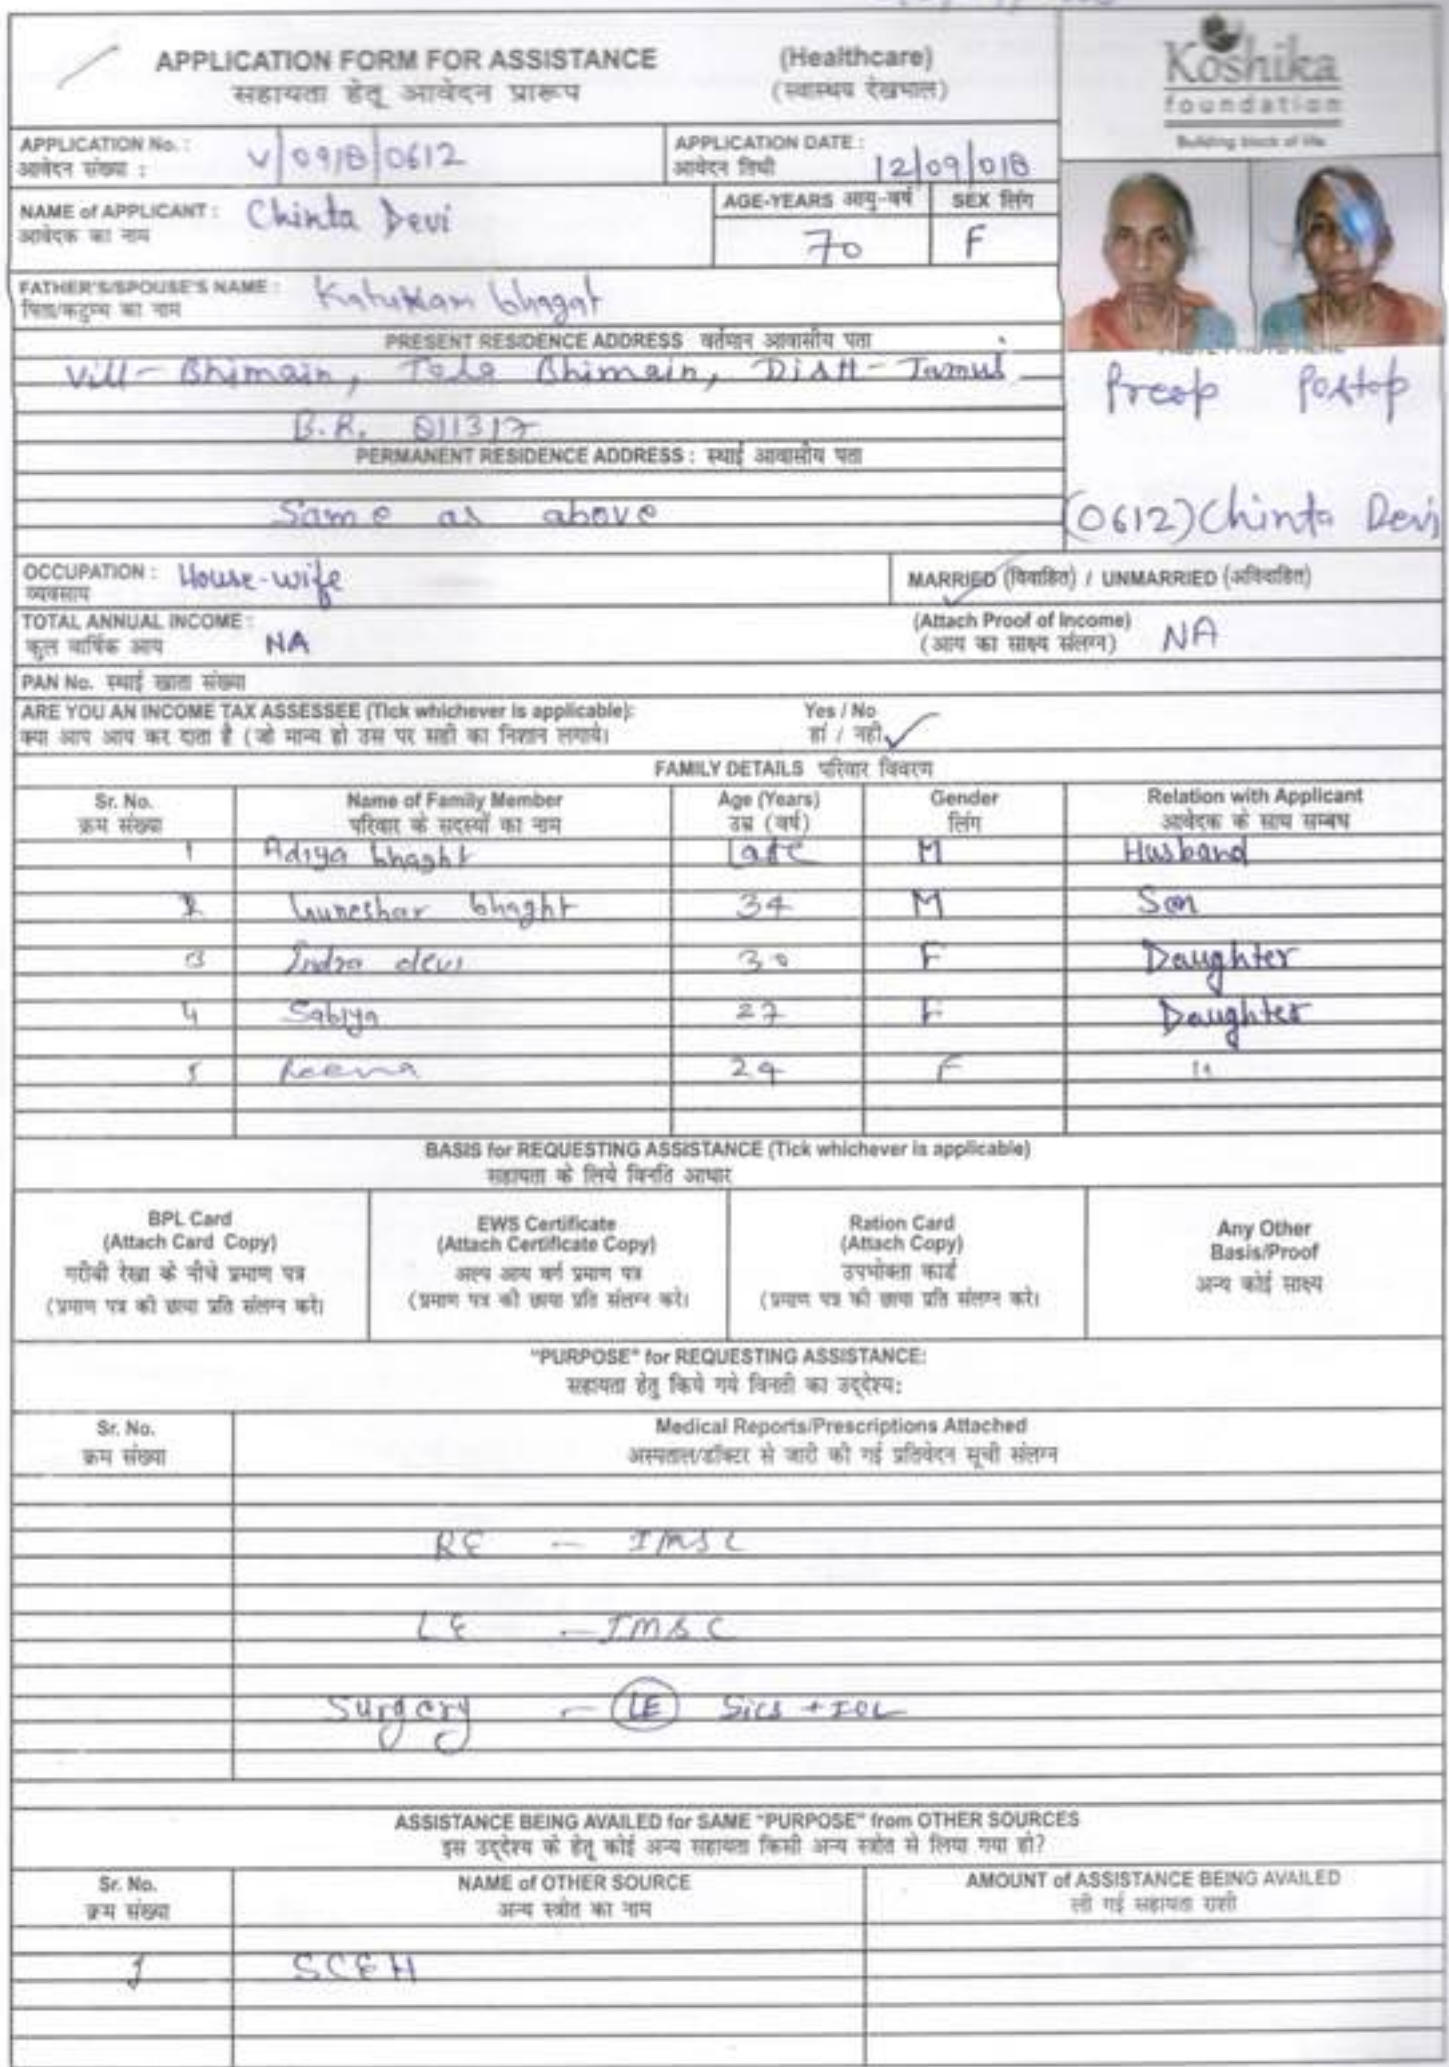 APPLICATION FORM FOR ASSISTANCE (Healthcare)
सहायता हेतू आवेदन प्रारूप (स्वास्थय देखभाल)
Koshika
foundation
Building block of life
APPLICATION No. : V/0918/0612
आवेदन संख्या :
APPLICATION DATE : 12/09/018
आवेदन तिथी
NAME of APPLICANT : Chinta Devi
आवेदक का नाम
AGE-YEARS आयु-वर्ष SEX लिंग
70 F
FATHER'S/SPOUSE'S NAME : bhagat
पिता/कटुम्ब का नाम
PRESENT RESIDENCE ADDRESS वर्तमान आवासीय पता
Vill - Bhimain, Tola Bhimain, Distt - Jamui
B.R. 811317
Preop Postop
PERMANENT RESIDENCE ADDRESS : स्थाई आवासीय पता
Same as above
(0612) Chinta Devi
OCCUPATION : House-wife
व्यवसाय
MARRIED (विवाहित) / UNMARRIED (अविवाहित)
TOTAL ANNUAL INCOME : NA
कुल वार्षिक आय
(Attach Proof of Income) NA
(आय का साक्ष्य संलग्न)
PAN No. स्थाई खाता संख्या
ARE YOU AN INCOME TAX ASSESSEE (Tick whichever is applicable): Yes / No
क्या आप आय कर दाता है (जो मान्य हो उस पर सही का निशान लगाये। हां / नही
FAMILY DETAILS परिवार विवरण
Sr. No. Name of Family Member Age (Years) Gender Relation with Applicant
क्रम संख्या परिवार के सदस्यों का नाम उम्र (वर्ष) लिंग आवेदक के साथ सम्बंध
1 Adiya bhaght Late M Husband
2 bhaght 34 M Son
3 Indra devi 30 F Daughter
4 Sabiya 27 F Daughter
5 Reena 24 F "
BASIS for REQUESTING ASSISTANCE (Tick whichever is applicable)
सहायता के लिये विनति आधार
BPL Card
(Attach Card Copy)
गरीबी रेखा के नीचे प्रमाण पत्र
(प्रमाण पत्र की छाया प्रति संलग्न करे।
EWS Certificate
(Attach Certificate Copy)
अल्प आय वर्ग प्रमाण पत्र
(प्रमाण पत्र की छाया प्रति संलग्न करे।
Ration Card
(Attach Copy)
उपभोक्ता कार्ड
(प्रमाण पत्र की छाया प्रति संलग्न करे।
Any Other
Basis/Proof
अन्य कोई साक्ष्य
"PURPOSE" for REQUESTING ASSISTANCE:
सहायता हेतु किये गये विनती का उद्देश्य:
Sr. No. Medical Reports/Prescriptions Attached
क्रम संख्या अस्पताल/डॉक्टर से जारी की गई प्रतिवेदन सूची संलग्न
RE - IMSC
LE - IMSC
Surgery - LE SICS + IOL
ASSISTANCE BEING AVAILED for SAME "PURPOSE" from OTHER SOURCES
इस उद्देश्य के हेतू कोई अन्य सहायता किसी अन्य स्त्रोत से लिया गया हो?
Sr. No. NAME of OTHER SOURCE AMOUNT of ASSISTANCE BEING AVAILED
क्रम संख्या अन्य स्त्रोत का नाम ली गई सहायता राशी
1 SCEH